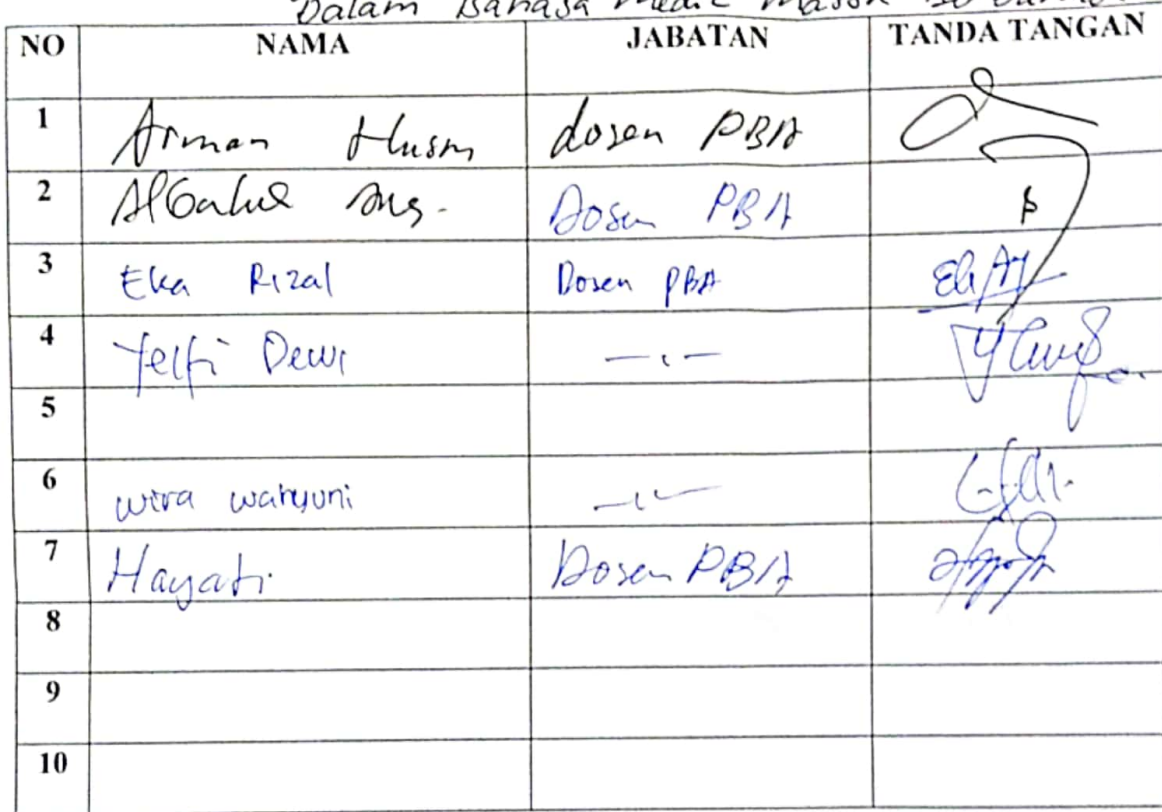 Dalam Bahasa
NO NAMA JABATAN TANDA TANGAN
1 Arman Husni dosen PBA
2 Dosen PBA
3 Eka Rizal Dosen PBA
4 Yelfi Dewi —ı—
5
6 wira wahyuni —ı—
7 Hayati Dosen PBA
8
9
10